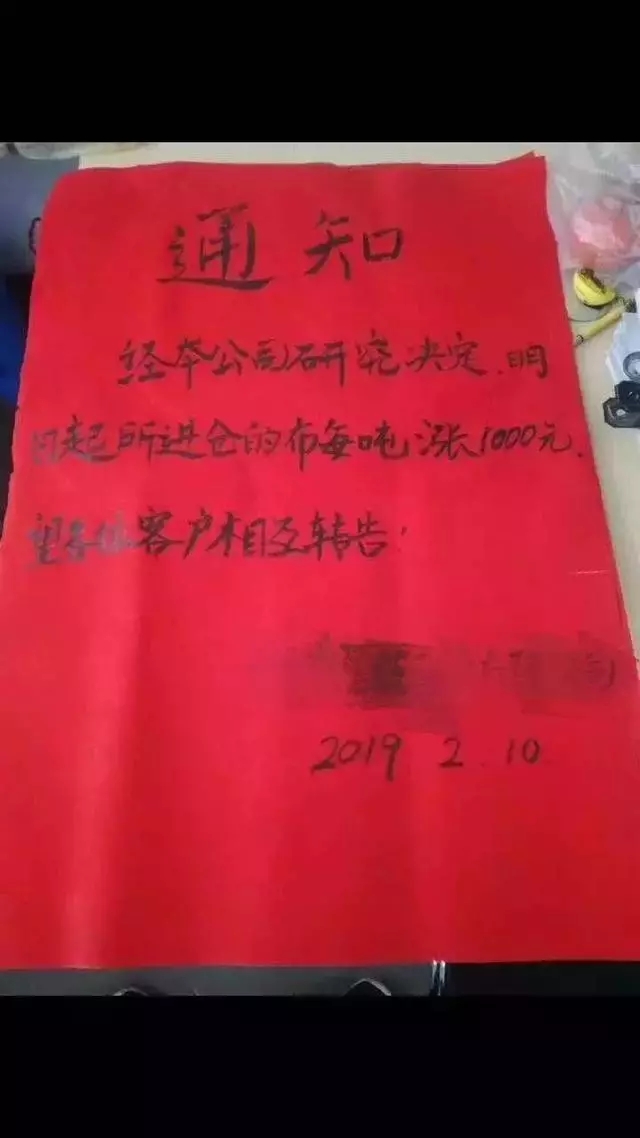 通知
经本公司研究决定.明
日起所进仓的布每吨涨1000元.
望各位客户相互转告.
2019 2.10